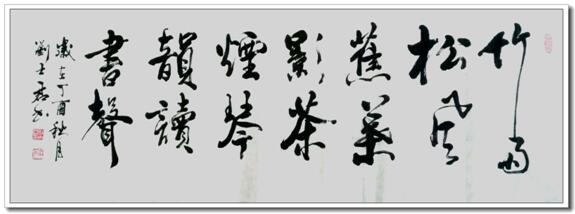 竹雨
松風
蕉葉
影茶
煙琴
韻讀
書聲
歲在丁酉秋月
劉士書